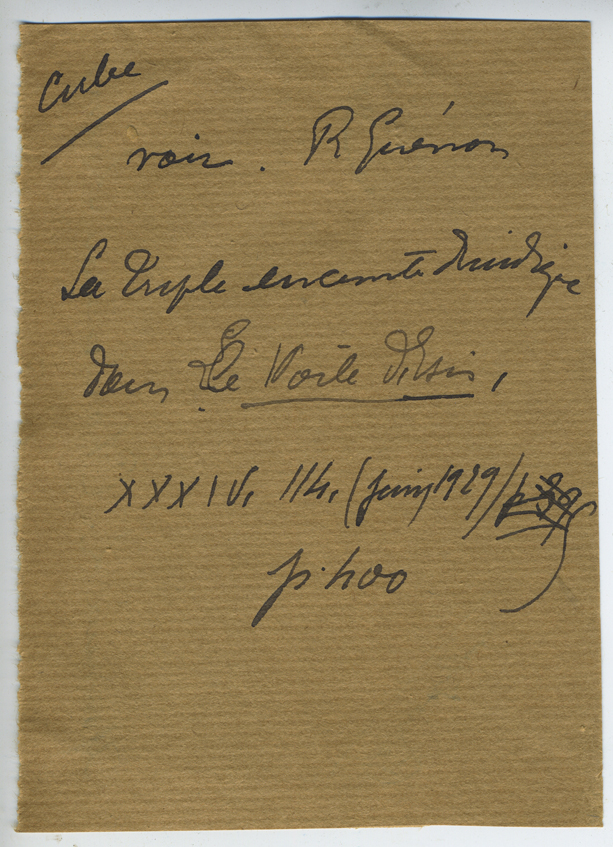 Cube
voir. R Guénon
La Triple enceinte druidique
dans Le Voile d'Isis,
XXXIV. 114. (Juin 1929)
p. 400